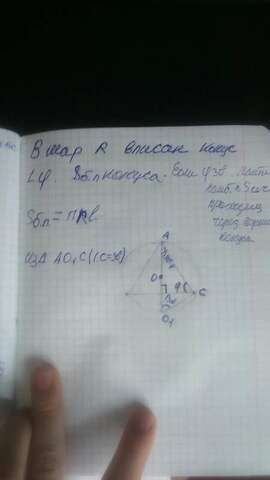 В шар R вписан конус
∠φ Sбп конуса. Если φ30. Найти
наиб. п S сеч
проходящ
через верши
конуса
Sбп = πRl
Из Δ AO₁C (∠C=90)
A
O
φ
C
O₁